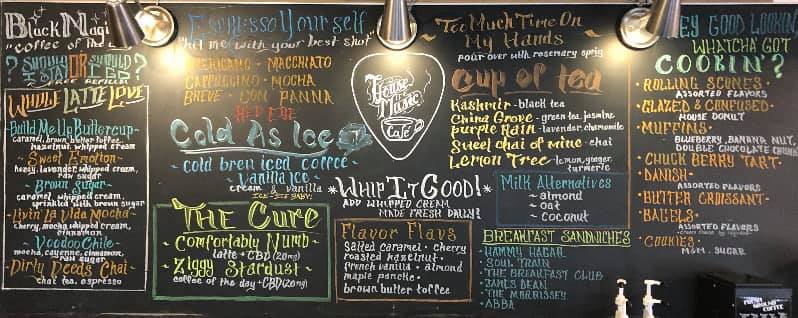 Black Magic
"coffee of the
? SHOULD I STAY OR SHOULD I GO ?
WHOLE LATTE LOVE
Build Me Up Buttercup-
caramel, brown butter toffee,
hazelnut, whipped cream
~ Sweet Emotion-
honey, lavender, whipped cream,
raw sugar
Brown Sugar-
caramel, whipped cream,
sprinkled with brown sugar
Livin La Vida Mocha-
cherry, mocha, whipped cream,
cinnamon
Voodoo Chile-
mocha, cayenne, cinnamon,
raw sugar
Dirty Deeds Chai-
chai tea, espresso
Espresso Yourself
"hit me with your best shot"
AMERICANO - MACCHIATO
CAPPUCCINO - MOCHA
BREVE - CON PANNA
RED EYE
Cold As Ice
~ cold brew iced coffee ~
~ Vanilla Ice ~
cream & vanilla
ICE ICE BABY
THE Cure
~ Comfortably Numb ~
latte + CBD (20mg)
~ Ziggy Stardust ~
coffee of the day + CBD (20mg)
House of Music
Cafe
*WHIP IT GOOD!*
ADD WHIPPED CREAM
MADE FRESH DAILY!
Flavor Flavs
Salted caramel - cherry
roasted hazelnut -
french vanilla - almond
maple panche -
brown butter toffee
~ Too Much Time On
My Hands
pour over with rosemary sprig
Cup of tea
Kashmir - black tea
China Grove - green tea, jasmine
Purple Rain - lavender, chamomile
Sweet chai of mine - chai
Lemon Tree - lemon, ginger,
turmeric
Milk Alternatives
~ almond
~ oat
~ coconut
BREAKFAST SANDWICHES
- HAMMY HAGAR
- SOUL TRAIN
- THE BREAKFAST CLUB
- JAMES BEAN
- THE MORRISSEY
- ABBA
HEY GOOD LOOKIN'
WHATCHA GOT
COOKIN'?
- ROLLING SCONES -
ASSORTED FLAVORS
- GLAZED & CONFUSED -
HOUSE DONUT
- MUFFINS -
BLUEBERRY, BANANA NUT,
DOUBLE CHOCOLATE CHUNK
- CHUCK BERRY TART -
- DANISH -
ASSORTED FLAVORS
- BUTTER CROISSANT -
- BAGELS -
ASSORTED FLAVORS
- COOKIES -
M&M, SUGAR
FRESH
GROUND
COFFEE